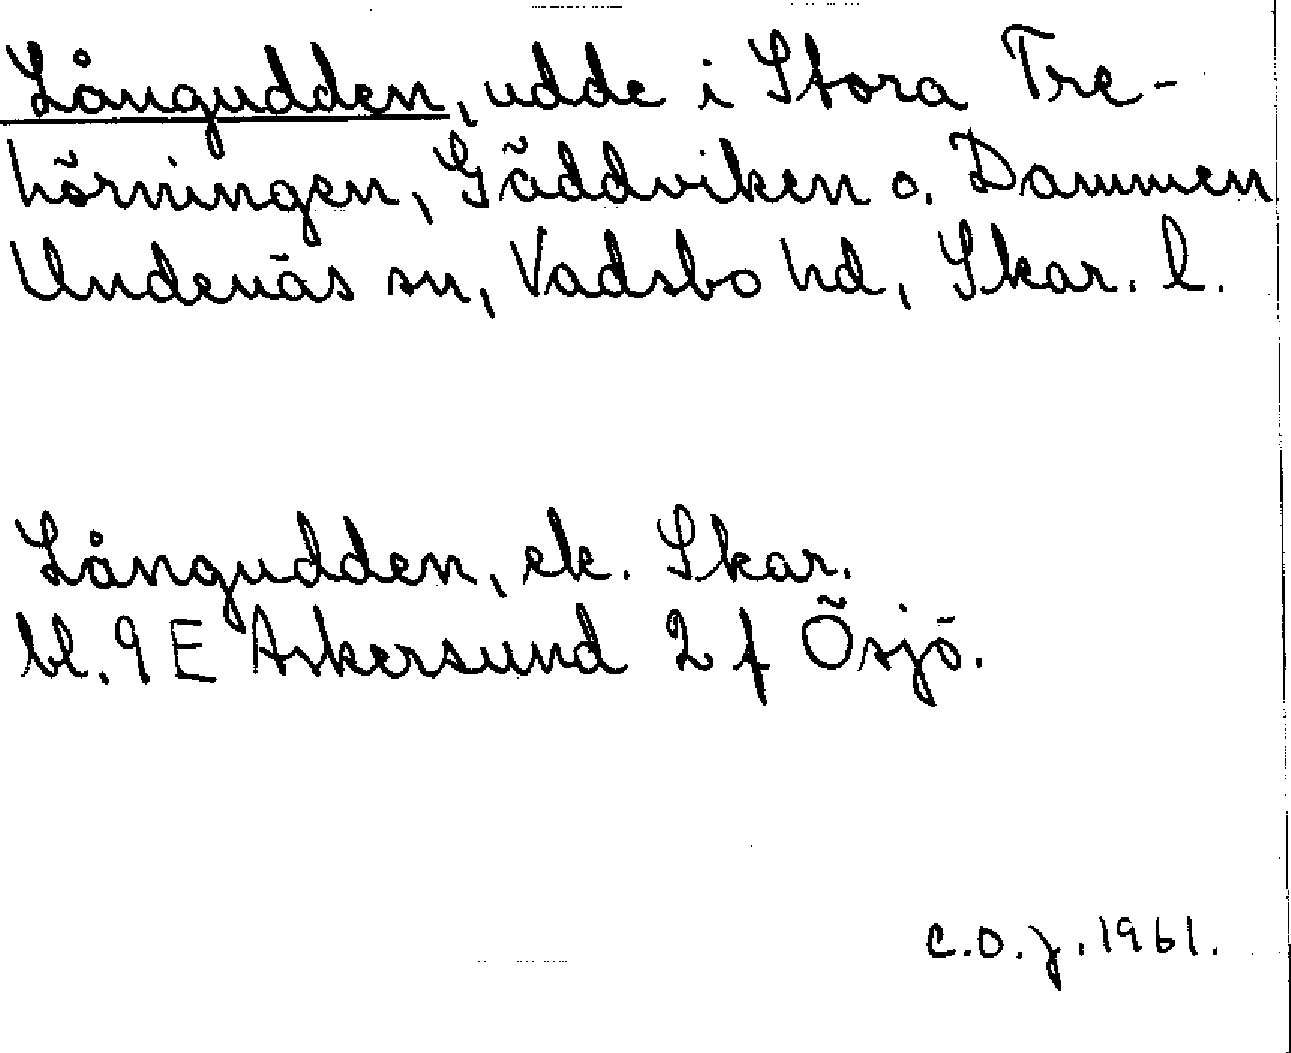 Långudden, udde i Stora Tre-
hörningen, Gäddviken o. Dammen
Undenäs sn, Vadsbo hd, Skar. l.
Långudden, ek. Skar.
bl. 9 E Askersund 2 f Ösjö.
C.O.J. 1961.